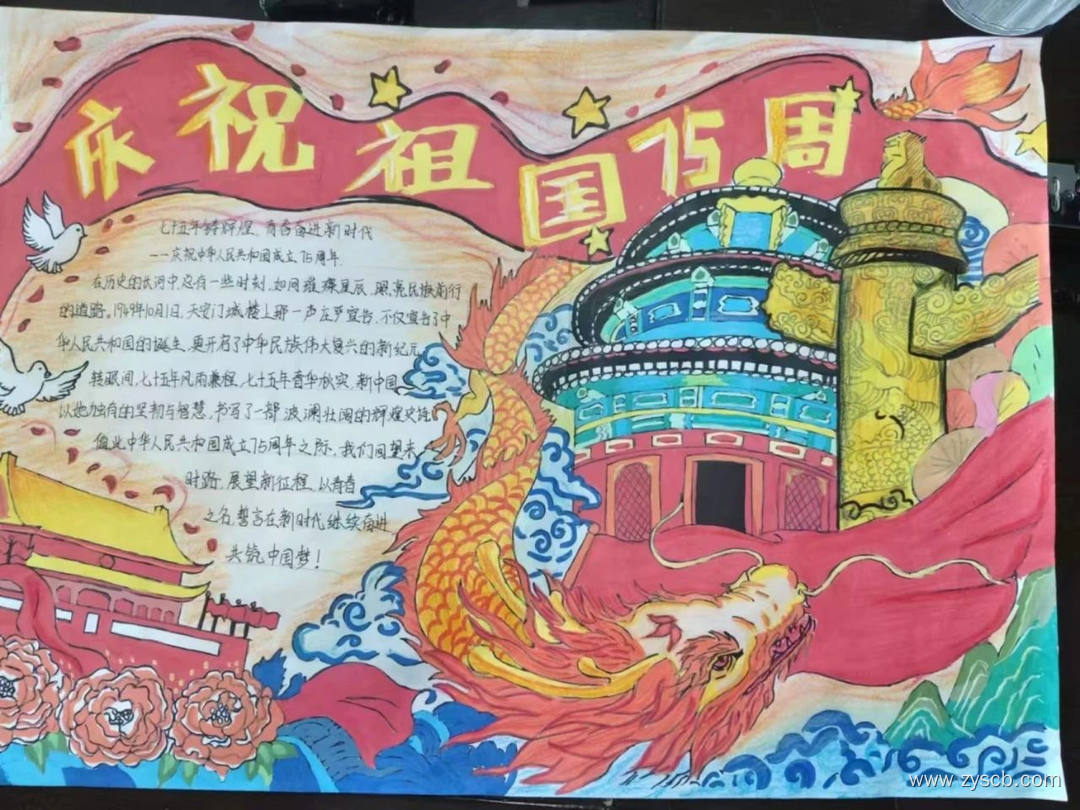 庆祝祖国75周
七十五年铸辉煌，青春奋进新时代
——庆祝中华人民共和国成立75周年
在历史的长河中,总有一些时刻,如同璀璨星辰,照亮民族前行
的道路。1949年10月1日,天安门城楼上那一声庄严宣告,不仅宣告了中
华人民共和国的诞生,更开启了中华民族伟大复兴的新纪元。
转眼间,七十五年风雨兼程,七十五年春华秋实,新中国
以她独有的坚韧与智慧,书写了一部波澜壮阔的辉煌史诗。
值此中华人民共和国成立75周年之际,我们回望来
时路,展望新征程,以青春
之名,誓言在新时代继续奋进
共筑中国梦!
www.zyscb.com